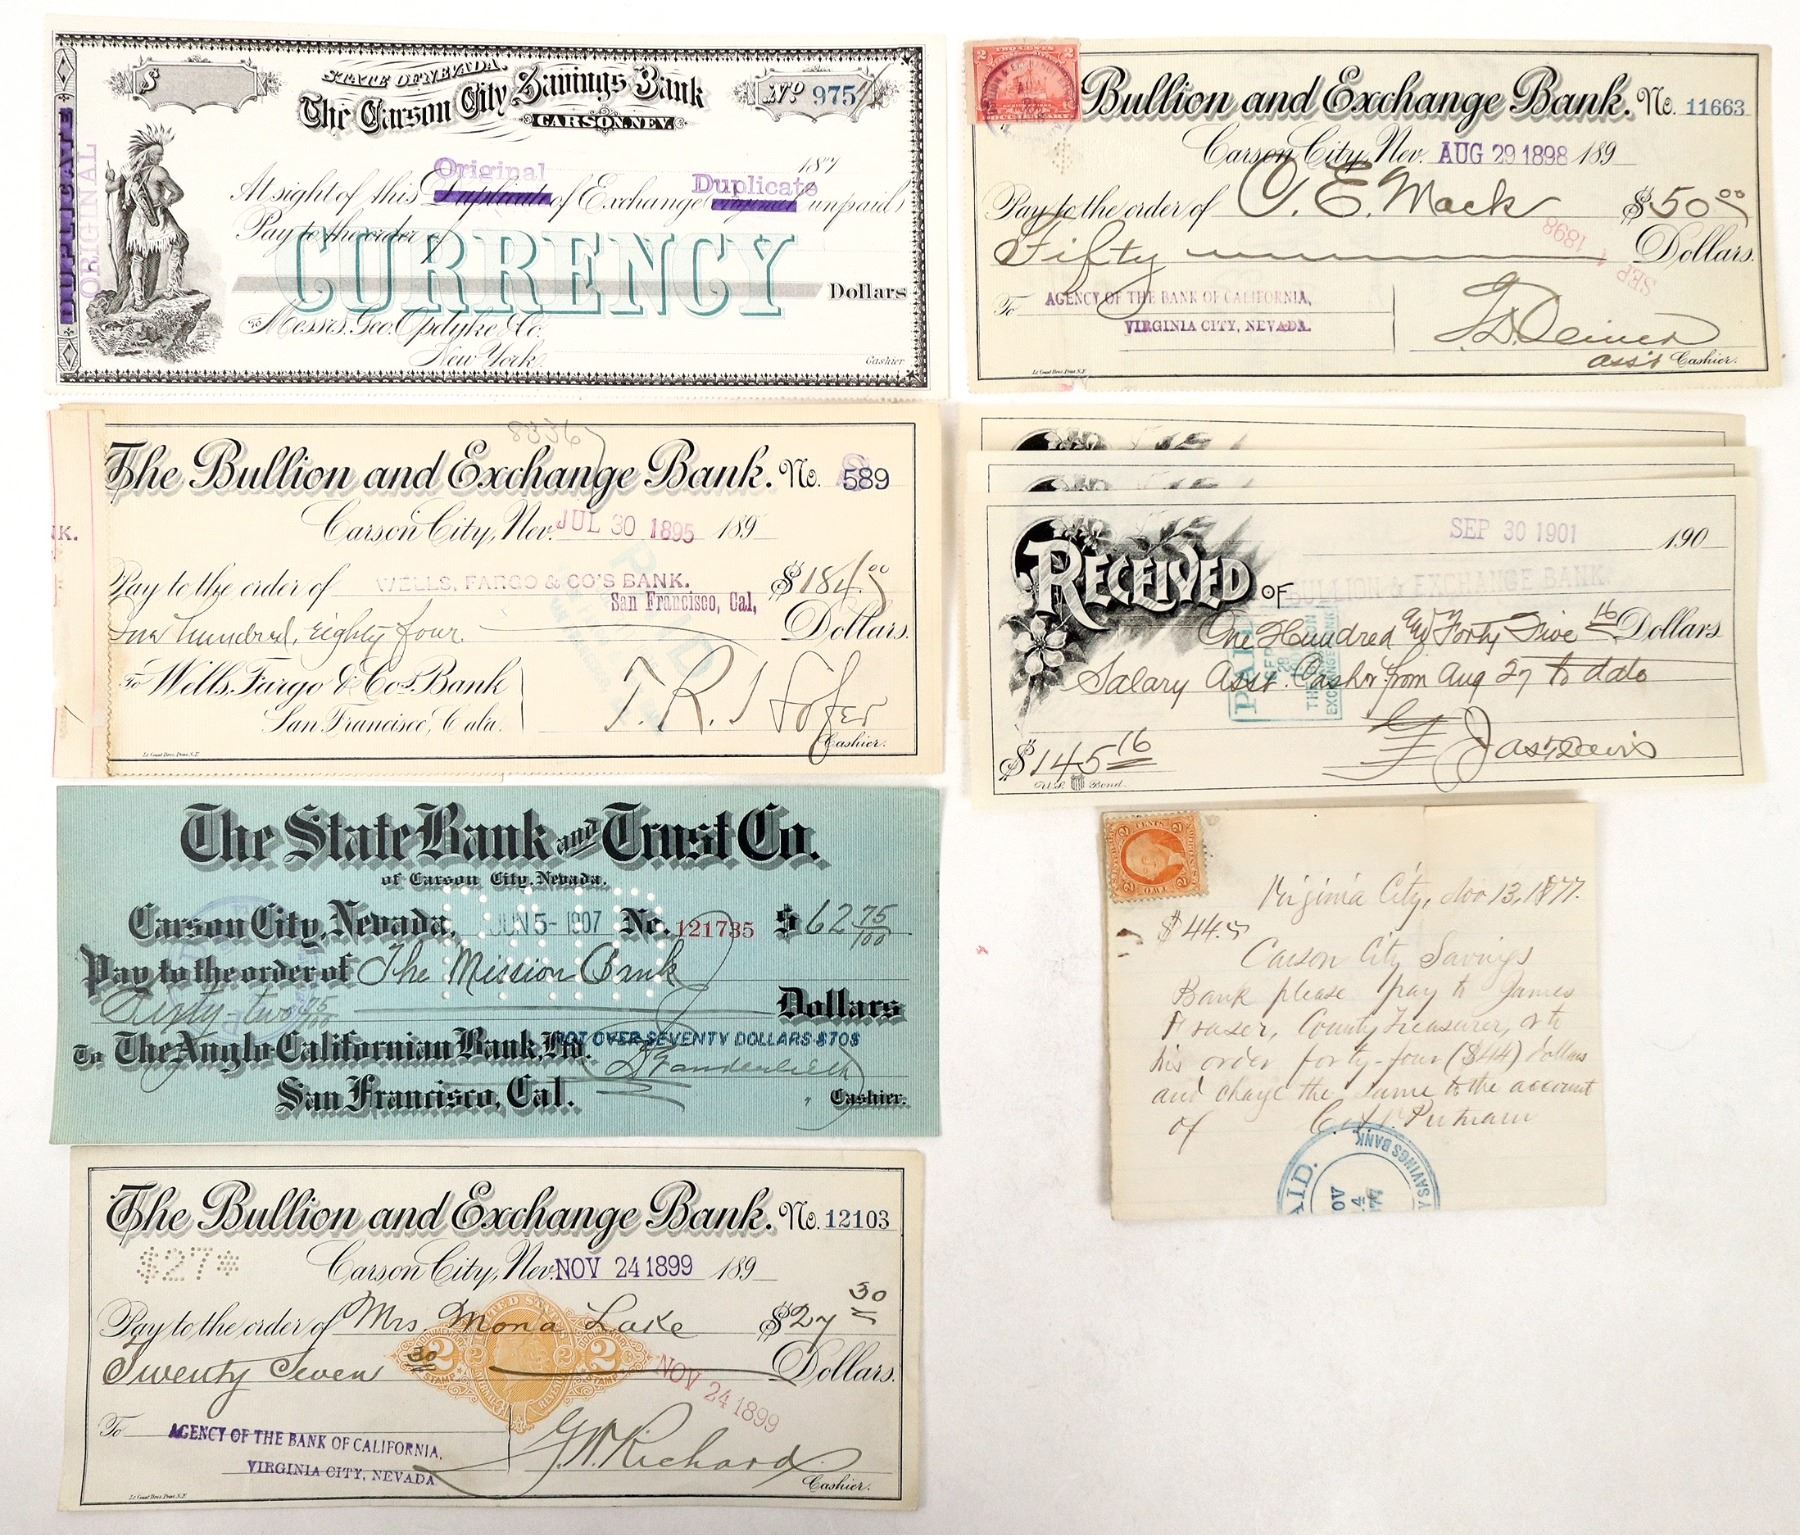 STATE OF NEVADA.
The Carson City Savings Bank
CARSON, NEV.
$
No 975
DUPLICATE
ORIGINAL
187
Original Duplicate
At sight of this Duplicate of Exchange Original unpaid
Pay to the order of
CURRENCY
Dollars
To Messrs. Geo. Opdyke & Co.
New York.
Cashier
TWO CENTS
2 2
DOCUMENTARY
Bullion and Exchange Bank. No. 11663
Carson City, Nev. AUG 29 1898 189
Pay to the order of O. E. Mack $50 00
Fifty Dollars.
SEP 1 1898
To AGENCY OF THE BANK OF CALIFORNIA,
VIRGINIA CITY, NEVADA.
Ass't Cashier.
Le Count Bros. Print S.F.
83367
The Bullion and Exchange Bank. No. 589
Carson City, Nev. JUL 30 1895 189
NK.
Pay to the order of WELLS, FARGO & CO'S BANK. $184 00
San Francisco, Cal,
One hundred, eighty four. Dollars.
PAID
To Wells, Fargo & Co's Bank
San Francisco, Cala.
T. R. Hofer
Cashier.
Le Count Bros. Print S.F.
SEP 30 1901 190
RECEIVED OF BULLION & EXCHANGE BANK.
One Hundred and Forty Five 16 Dollars
Salary Asst. Cashier from Aug 27 to date
PAID
THE BULLION
EXCHANGE BANK
$145 16
Jas. Davis
U.S. Bond
The State Bank and Trust Co.
of Carson City, Nevada.
Carson City, Nevada, JUN 5- 1907 No. 121735 $62 75/100
Pay to the order of The Mission Bank
Sixty-two 75/100 Dollars
NOT OVER SEVENTY DOLLARS $70$
To The Anglo Californian Bank, Ltd.
San Francisco, Cal.
Cashier.
2 CENTS 2
TWO
Virginia City, Nov 13, 1877.
$44.
Carson City Savings
Bank please pay to James
Fraser, County Treasurer, or to
his order forty-four ($44) dollars
and charge the same to the account
of C. Putnam
PAID.
NOV
14
77
Y SAVINGS BANK
The Bullion and Exchange Bank. No. 12103
$27*
Carson City, Nev. NOV 24 1899 189
Pay to the order of Mrs. Mona Lake $27 30
UNITED STATES
2 2 2 2
STAMP STAMP
Twenty Seven 30 Dollars.
NOV 24 1899
To AGENCY OF THE BANK OF CALIFORNIA,
VIRGINIA CITY, NEVADA
G. W. Richard
Cashier.
Le Count Bros. Print S.F.